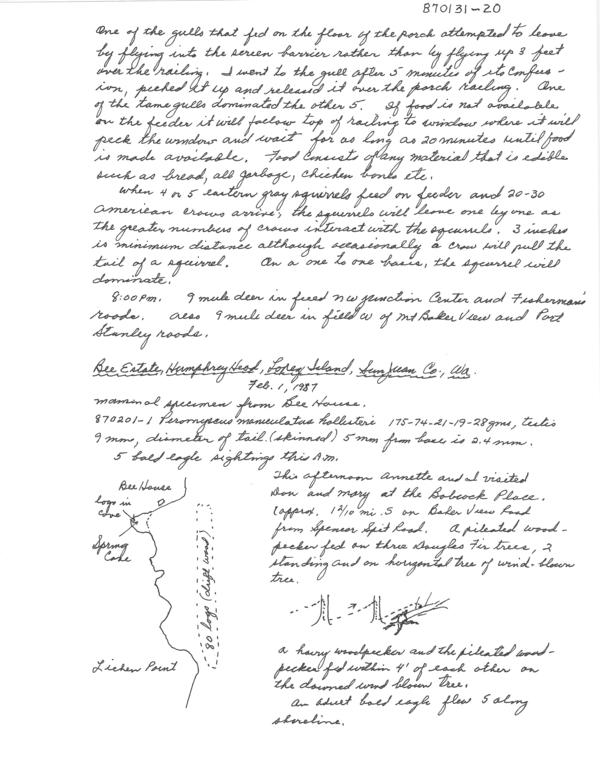 870131-20
One of the gulls that fed on the floor of the porch attempted to leave
by flying into the screen barrier rather than by flying up 3 feet
over the railing. I went to the gull after 5 minutes of its confus-
ion, picked it up and released it over the porch railing. One
of the tame gulls dominated the other 5. If food is not available
on the feeder it will follow top of railing to window where it will
peck the window and wait for as long as 20 minutes until food
is made available. Food consists of any material that is edible
such as bread, all garbage, chicken bones etc.
When 4 or 5 eastern gray squirrels feed on feeder and 20-30
American crows arrive, the squirrels will leave one by one as
the greater numbers of crows interact with the squirrels. 3 inches
is minimum distance although occasionally a crow will pull the
tail of a squirrel. On a one to one basis, the squirrel will
dominate.
8:00 P.M. 9 mule deer in field NW junction Center and Fisherman's
roads. Also 9 mule deer in field W of Mt Baker View and Port
Stanley roads.
Bee Estate, Humphrey Head, Lopez Island, San Juan Co., Wa.
Feb. 1, 1987
Mammal specimen from Bee House.
870201-1 Peromyscus maniculatus hollisteri 175-74-21-19-28gms, testis
9 mm, diameter of tail (skinned) 5 mm from base is 2.4 mm.
5 bald eagle sightings this A.M.
Bee House
logs in
cove
Spring
Cove
80 logs (drift wood)
Lichen Point
This afternoon Annette and I visited
Don and Mary at the Babcock Place.
(approx. 1 2/10 mi. S on Baker View Road
from Spencer Spit Road. A pileated wood-
pecker fed on three Douglas Fir trees, 2
standing and on horizontal tree of wind-blown
tree.
A hairy woodpecker and the pileated wood-
pecker fed within 4' of each other on
the downed wind blown tree.
An adult bald eagle flew S along
shoreline.